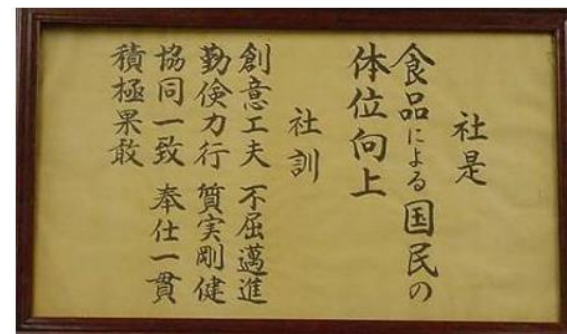 社是
食品による国民の
体位向上
社訓
創意工夫 不屈邁進
勤倹力行 質実剛健
協同一致 奉仕一貫
積極果敢